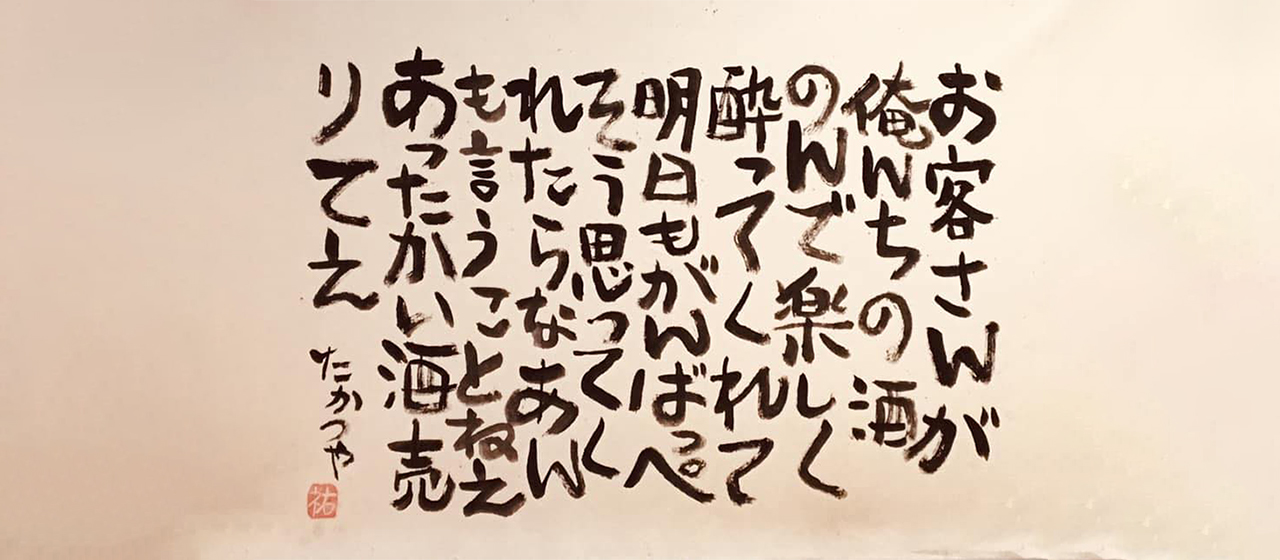 お客さんが
俺んちの酒
のんで楽しく
酔ってくれて
明日もがんばっぺ
そう思ってく
れたらなあん
も言うことねえ
あったかい酒売
りてえ
たかつや
祐